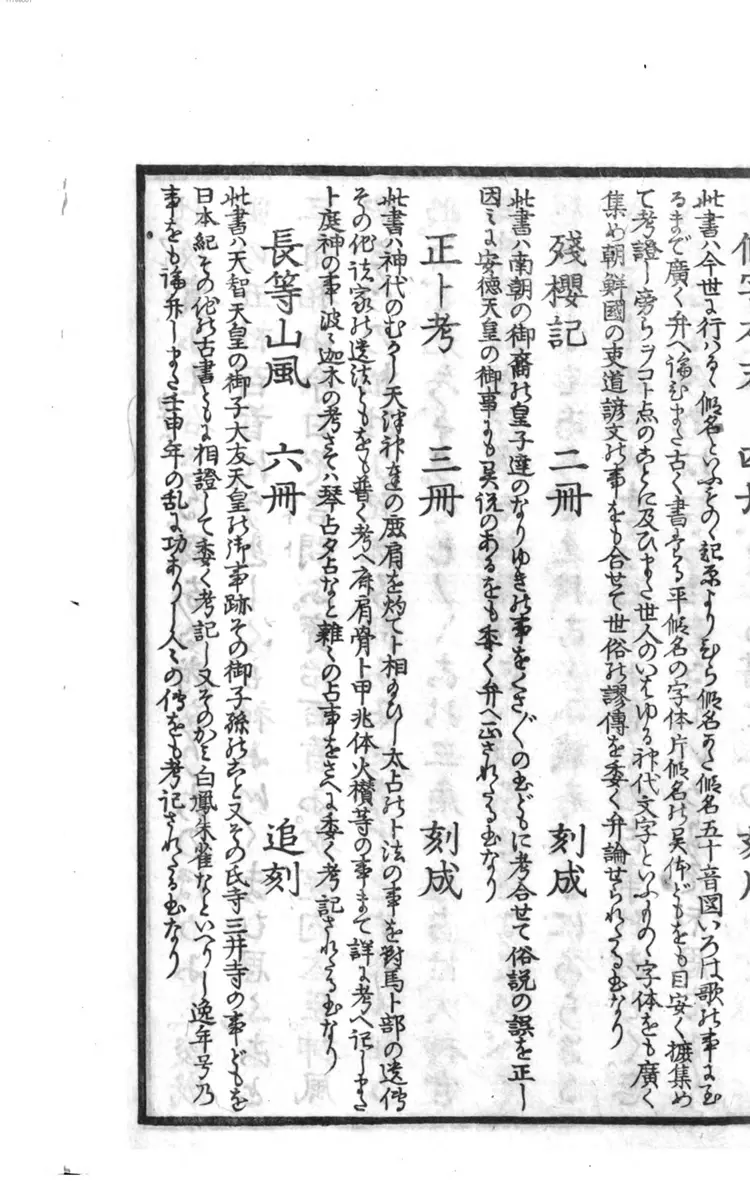 仮字本末　四冊　刻成
此書ハ今世に行ハるゝ假名といふものゝ起原よりひら假名かた假名五十音図いろは歌の事に至
るまで廣く弁へ論ひまた古く書たる平假名の字体片假名の異体どもをも目安く摭集め
て考證し旁らヲコト点のことに及ひまた世人のいはゆる神代文字といふものゝ字体をも廣く
集め朝鮮國の吏道諺文の事をも合せて世俗の謬傳を委く弁論せられたる書なり
殘櫻記　二冊　刻成
此書ハ南朝の御裔の皇子達のなりゆきの事をくさ〴〵の書どもに考合せて俗説の誤を正し
因ミに安德天皇の御事にも異説のあるをも委く弁へ正されたる書なり
正卜考　三冊　刻成
此書ハ神代のむかし天津神達の鹿肩を灼て卜相給ひし太占の卜法の事を對馬卜部の遺傳
その他諸家の遺法ともをも普く考へ鹿肩骨卜甲兆体火欑等の事まて詳に考へ記しまた
卜庭神の事波ゝ迦木の考さてハ琴占夕占なと雜ゝの占事をさへに委く考記されたる書なり
長等山風　六冊　追刻
此書ハ天智天皇の御子大友天皇の御事跡その御子孫のこと又その氏寺三井寺の事どもを
日本紀その他の古書ともに相證して委く考記し又そのかミ白鳳朱雀なといへりし逸年号乃
事をも論弁しまた壬申年の乱に功ありし人ゝの傳をも考記されたる書なり